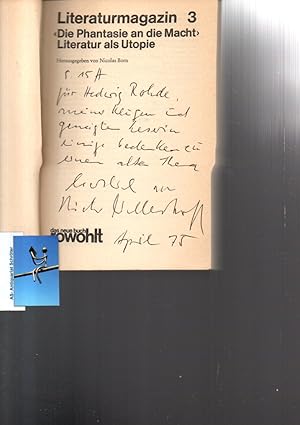 Literaturmagazin 3
‹Die Phantasie an die Macht›
Literatur als Utopie
Herausgegeben von Nicolas Born
S 15 ff
für Hedwig Rohde,
meine klugen und
geneigten Leserin
einige Bedenken zu
einem alten Thema
herzlich von
Dieter Wellershoff
das neue buch
rowohlt
April 75
Ab. Antiquariat Schröter